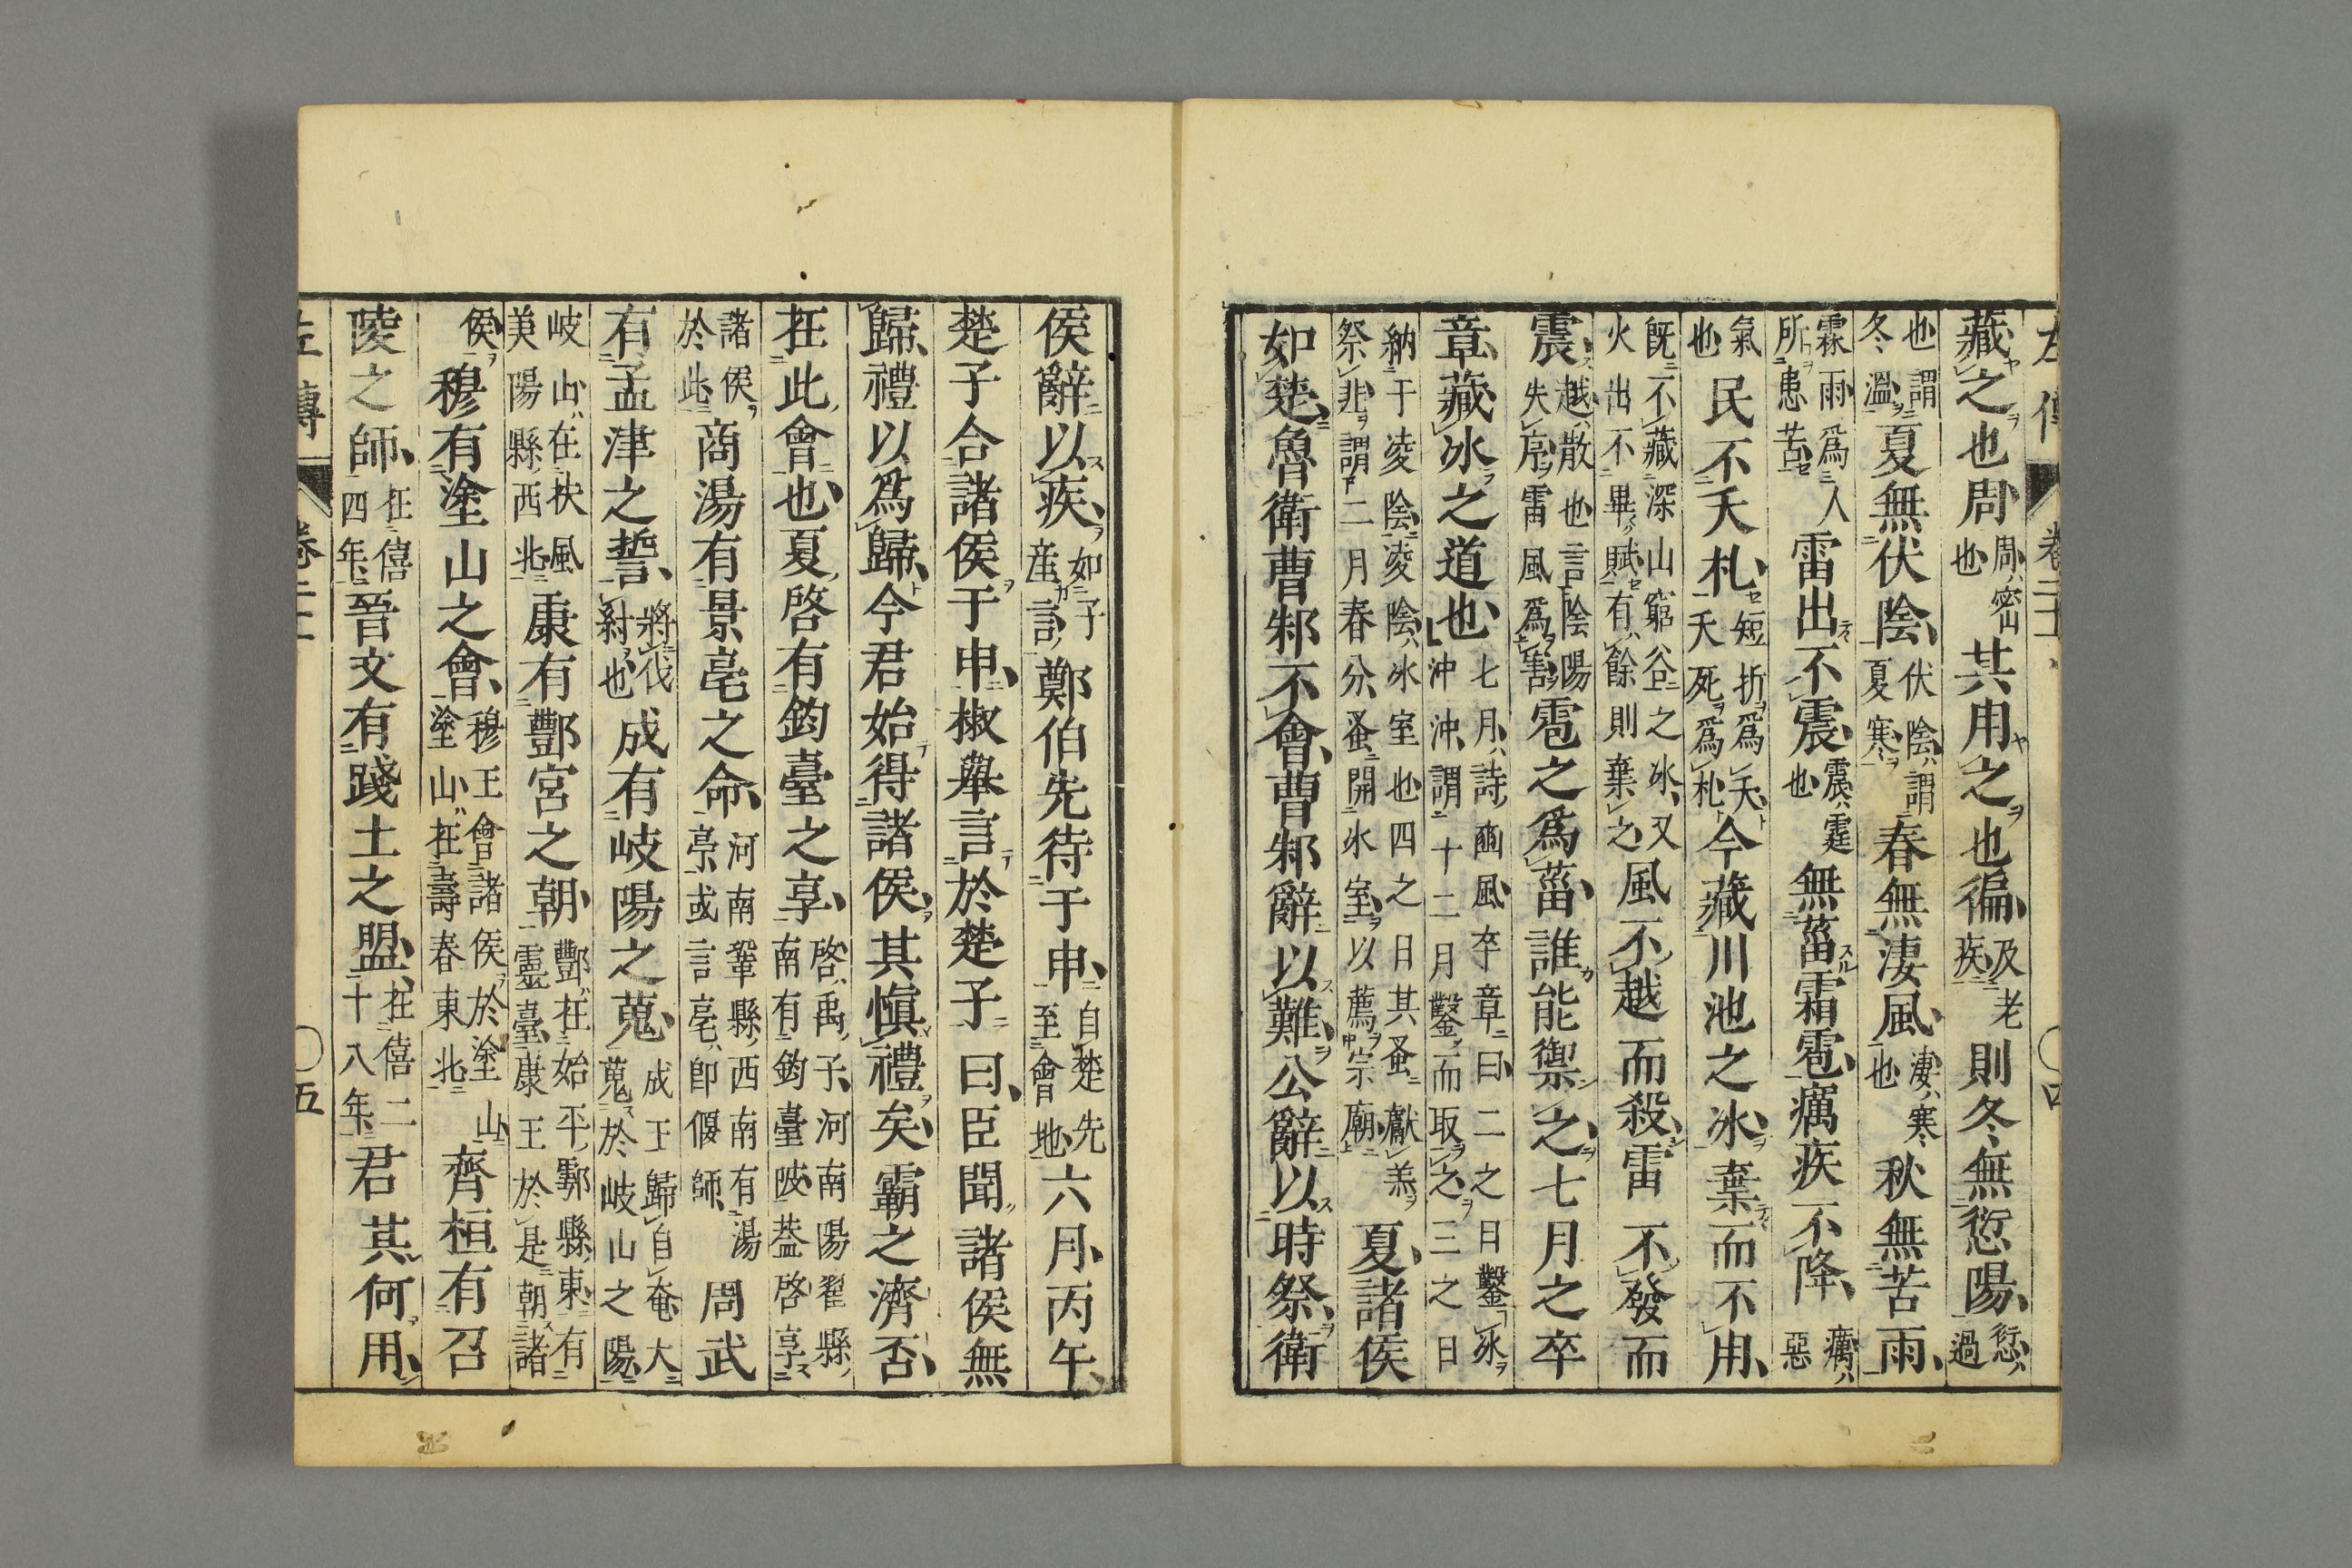 藏之也周周密也其用之也徧及老疾則冬無愆陽愆過
也謂冬溫夏無伏陰伏陰謂夏寒春無凄風凄寒也秋無苦雨
霖雨爲人所患苦雷出不震震霆也無菑霜雹癘疾不降癘惡
氣也民不夭札短折爲夭夭死爲札今藏川池之冰棄而不用
既不藏深山窮谷之冰又火出不畢賦有餘則棄之風不越而殺雷不發而
震越散也言陰陽失序雷風爲害雹之爲菑誰能禦之七月之卒
章藏冰之道也七月詩豳風卒章曰二之日鑿冰沖沖謂十二月鑿而取之三之日
納于凌陰凌陰冰室也四之日其蚤獻羔祭非謂二月春分蚤開冰室以薦宗廟夏諸侯
如楚魯衛曹邾不會曹邾辭以難公辭以時祭衛
侯辭以疾如子產言鄭伯先待于申自楚先至會地六月丙午
楚子合諸侯于申椒舉言於楚子曰臣聞諸侯無
歸禮以爲歸今君始得諸侯其愼禮矣霸之濟否
在此會也夏啓有鈞臺之享啓禹子河南陽翟縣南有鈞臺陂葢啓享
諸侯於此商湯有景亳之命河南鞏縣西南有湯亭或言亳卽偃師周武
有孟津之誓將伐紂也成有岐陽之蒐成王歸自奄大蒐於岐山之陽
岐山在扶風美陽縣西北康有酆宮之朝酆在始平鄠縣東有靈臺康王於是朝諸
侯穆有塗山之會穆王會諸侯於塗山塗山在壽春東北齊桓有召
陵之師在僖四年晉文有踐土之盟在僖二十八年君其何用